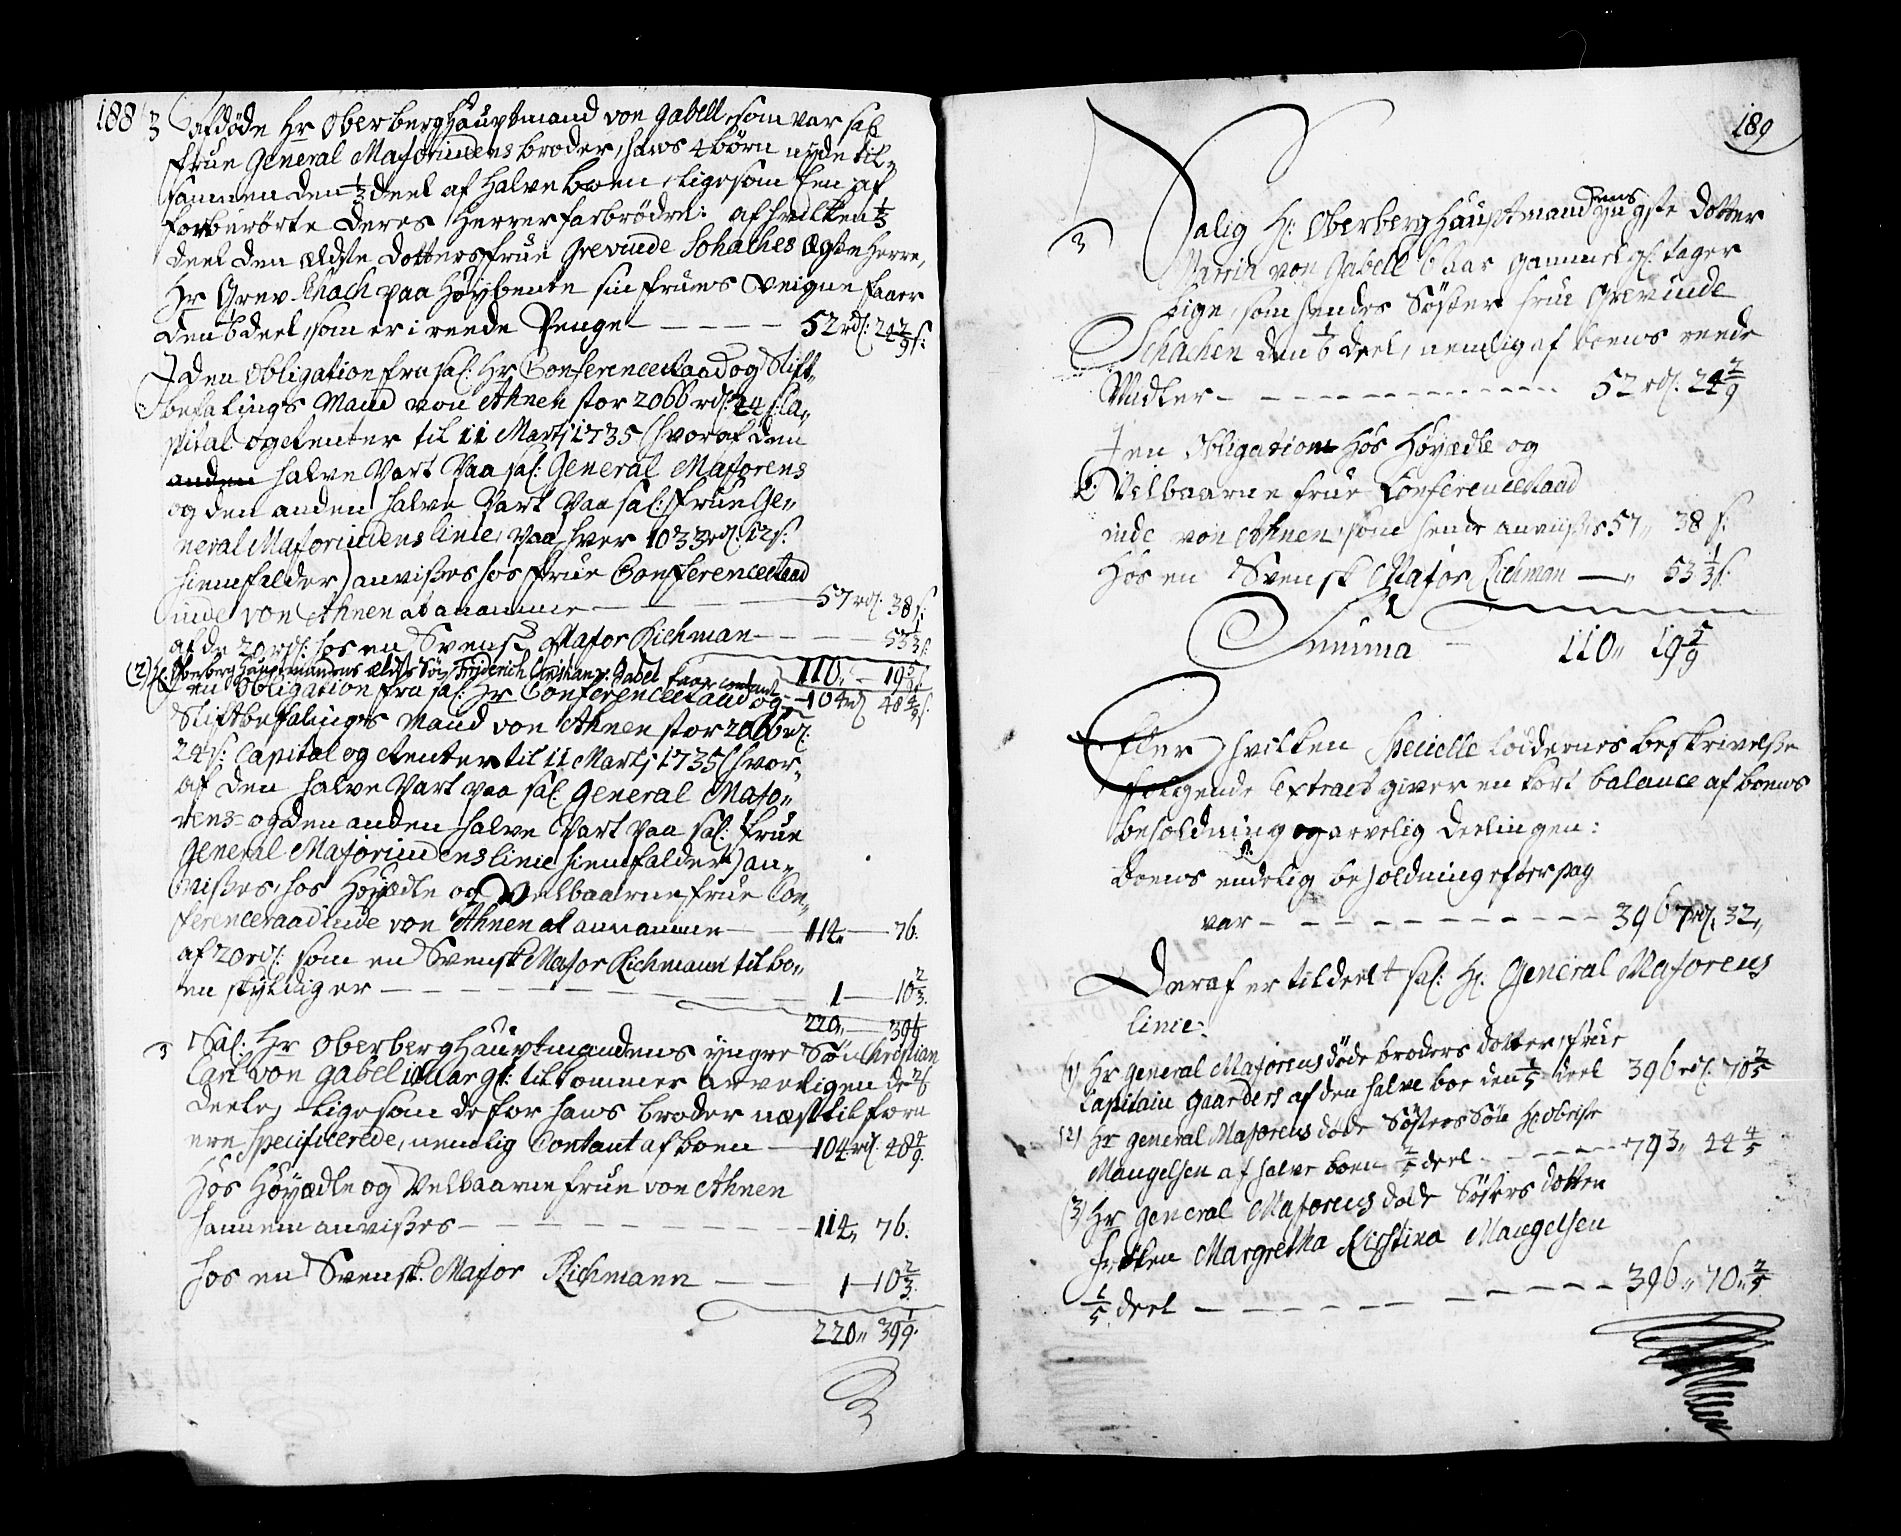 188
3 afdøde Hr Oberberghauptmand von Gabell, som var sal
Frue General Majorindens broder, hans 4 børn nyde til„
sammen den 1/3 deel af halve boen, ligesom Een af
forberørte deres Herrer farbrødre: af hvilken 1/3
deel den ældste dotters frue Grevinde Schathes ægte Herre,
Hr Grev Schach paa Høybente sin frues Veigne faaer
den 6 deel, som er i reede Penge — — — — 52 rd: 24 2/9 s:
I den Obligation fra sal: Hr Conferenceraad og Stift„
befalings Mand von Ahnen stor 2066 rd: 24 s: Ca„
pital og Renter til 11 Martj 1735 (hvoraf den
anden halve Part Paa sal: General Majorens
og den anden halve Part Paa sal: Frue Ge„
neral Majorindens linie, paa hver 1033 rd: 12 s:
hiemfalder) anvises hos Frue Conferenceraad
inde von Ahnen at anamme — — — 57 rd: 38 s:
af de 20 rd: hos en Svensk Major Richman — — — 53 1/3 s:
110„ — 19 5/9
(2) Hr: Oberberg Hauptmandens ældste Søn Friderich Christian v: Gabel faar contant — 104 rd 48 4/9 s:
I en Obligation fra sal: Hr Conferenceraad og
Stiftbefalings Mand von Ahnen stor 2066 rd.
24 s: Capital og Renter til 11 Martj 1735 (hvor„
af den halve Part paa sal. General Majo„
rens- og den anden halve Part paa sal: Frue
General Majorindens linie hiemfalder) an„
vises, hos Høyædle og Velbaarne Frue Con„
ferenceraadinde von Ahnen at annamme — 114„ — 76.
af 20 rd: som en Svensk Major Richmann til bo„
en skyldig er — — — — — — 1 — 10 2/3.
220„ — 39 1/9
3 Sal: Hr Oberberghauptmandens yngre Søn Christian
Carl von Gabel 11 Aar gl: tilkommer arveligen de 2/6
deele, ligesom de for hans broder næst tilforn
ere specificerede, nemlig Contant af boen — 104 rd. 48 4/9.
Hos Høyædle og Velbaarne Frue von Ahnen
hannem anvises — — — — — — 114„ 76.
hos en Svensk: Major Richmann — — 1 — 10 2/3.
220„ 39 1/9.
189
3 Salig Hr: Oberberg Hauptmandens yngste dotter
Maria von Gabell 6 aar gammel gl: tager
lige, som hendes Søster Frue Grevinde
Schachen den 1/6 deel, nemlig af boens reede
Midler — — — — — — — 52 rd. 24 2/9
I en Obligation hos Høyædle og
Velbaarne Frue Conferenceraad
inde von Ahnen, som hende anvises 57„ 38 s:
hos en Svensk Major Richman —„ 53 1/3 s.
Summa — 110„ 19 5/9
Efter hvilken Specielle loddernes beskrivelse
følgende Extract giver en kort balance af boens
beholdning og arvelig deelingen:
Boens endelig beholdning efter pag
var — — — — — — — — — 3967 rd. 32„
Deraf er tildeelt sal: Hr. General Majorens
linie.
(1) Hr General Majorens døde broders dotter, frue
Capitain Gaarders af den halve boe den 1/5 deel 396 rd. 70 2/5
(2) Hr General Majorens døde Søsters Søn Hr Obriste
Mangelsen af halve boen 2/5 deel — — — — 793„ 44 4/5
(3) Hr General Majorens døde Søsters dotter
Frøken Margretha Kirstina Mangelsen
1/5 deel — — — — — — — — 396„ 70„ 2/5